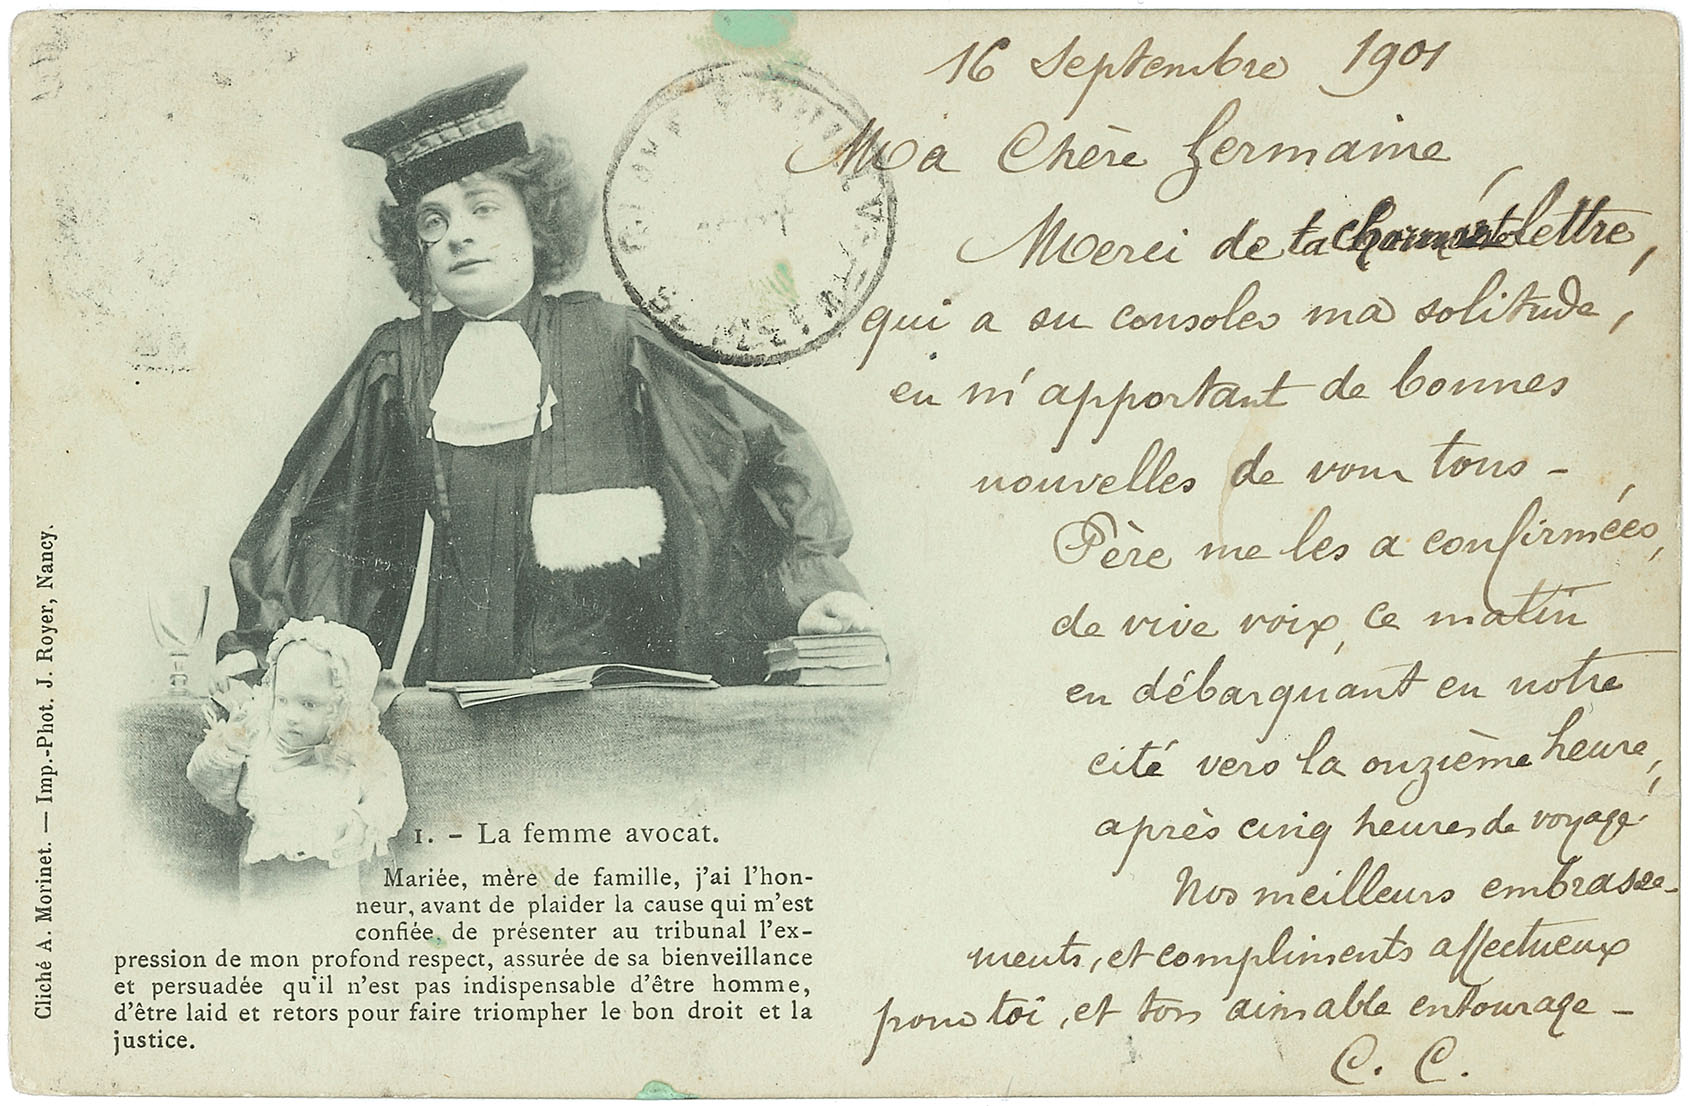 16 Septembre 1901
Ma Chère Germaine,
Merci de ta charmante lettre,
qui a su consoler ma solitude,
en m'apportant de bonnes
nouvelles de vous tous -
Père me les a confirmées,
de vive voix, ce matin
en débarquant en notre
cité vers la onzième heure,
après cinq heures de voyage.
Nos meilleurs embrasse-
ments, et compliments affectueux
pour toi, et ton aimable entourage -
C. C.
1. - La femme avocat.
Mariée, mère de famille, j'ai l'hon-
neur, avant de plaider la cause qui m'est
confiée, de présenter au tribunal l'ex-
pression de mon profond respect, assurée de sa bienveillance
et persuadée qu'il n'est pas indispensable d'être homme,
d'être laid et retors pour faire triompher le bon droit et la
justice.
Cliché A. Morinet. — Imp.-Phot. J. Royer, Nancy.